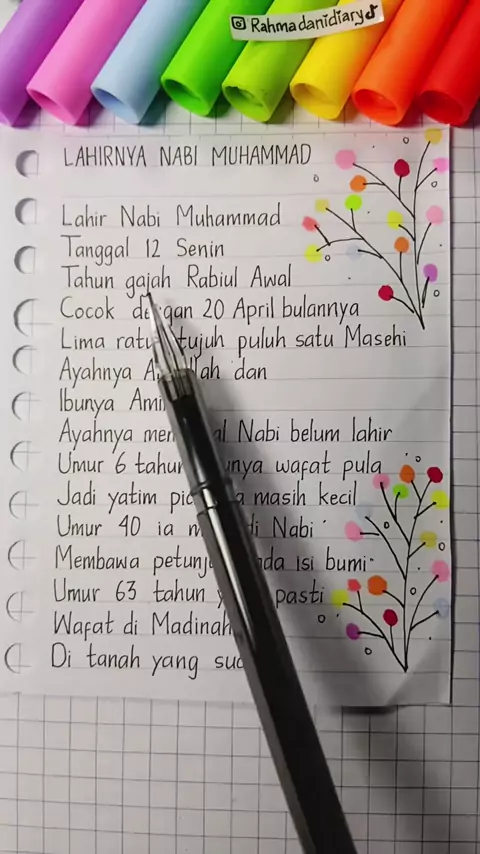 Rahmadanidiary
LAHIRNYA NABI MUHAMMAD
Lahir Nabi Muhammad
Tanggal 12 Senin
Tahun gajah Rabiul Awal
Cocok dengan 20 April bulannya
Lima ratus tujuh puluh satu Masehi
Ayahnya dan
Ibunya
Ayahnya Nabi belum lahir
Umur 6 tahun wafat pula
Jadi yatim masih kecil
Umur 40 ia Nabi
Membawa isi bumi
Umur 63 tahun pasti
Wafat di Madinah
Di tanah yang